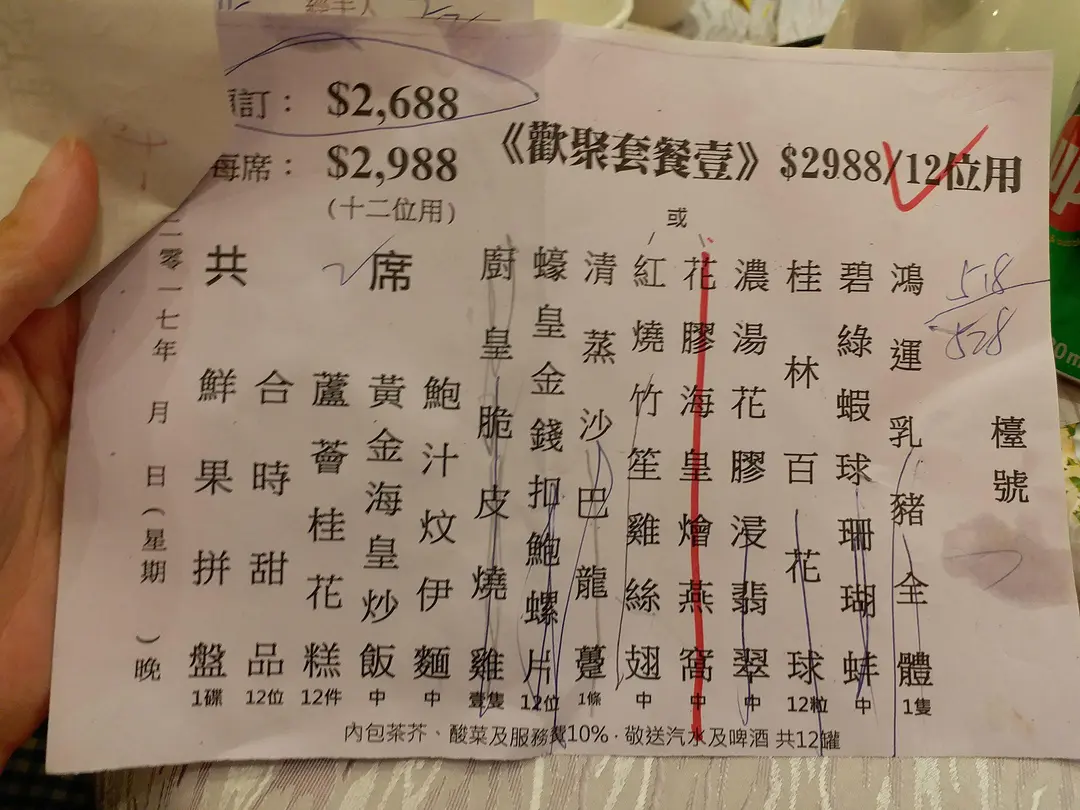 經手人
預訂：$2,688
每席：$2,988
(十二位用)
《歡聚套餐壹》$2988/12位用
518
528
檯號
鴻運乳豬全體 1隻
碧綠蝦球珊瑚蚌 中
桂林百花球 12粒
濃湯花膠浸翡翠 中
花膠海皇燴燕窩 中
或
紅燒竹笙雞絲翅 中
清蒸沙巴龍躉 1條
蠔皇金錢扣鮑螺片 12位
廚皇脆皮燒雞 壹隻
鮑汁炆伊麵 中
黃金海皇炒飯 中
蘆薈桂花糕 12件
合時甜品 12位
鮮果拼盤 1碟
共 2 席
二零一七年 月 日(星期 )晚
內包茶芥、酸菜及服務費10%．敬送汽水及啤酒 共12罐